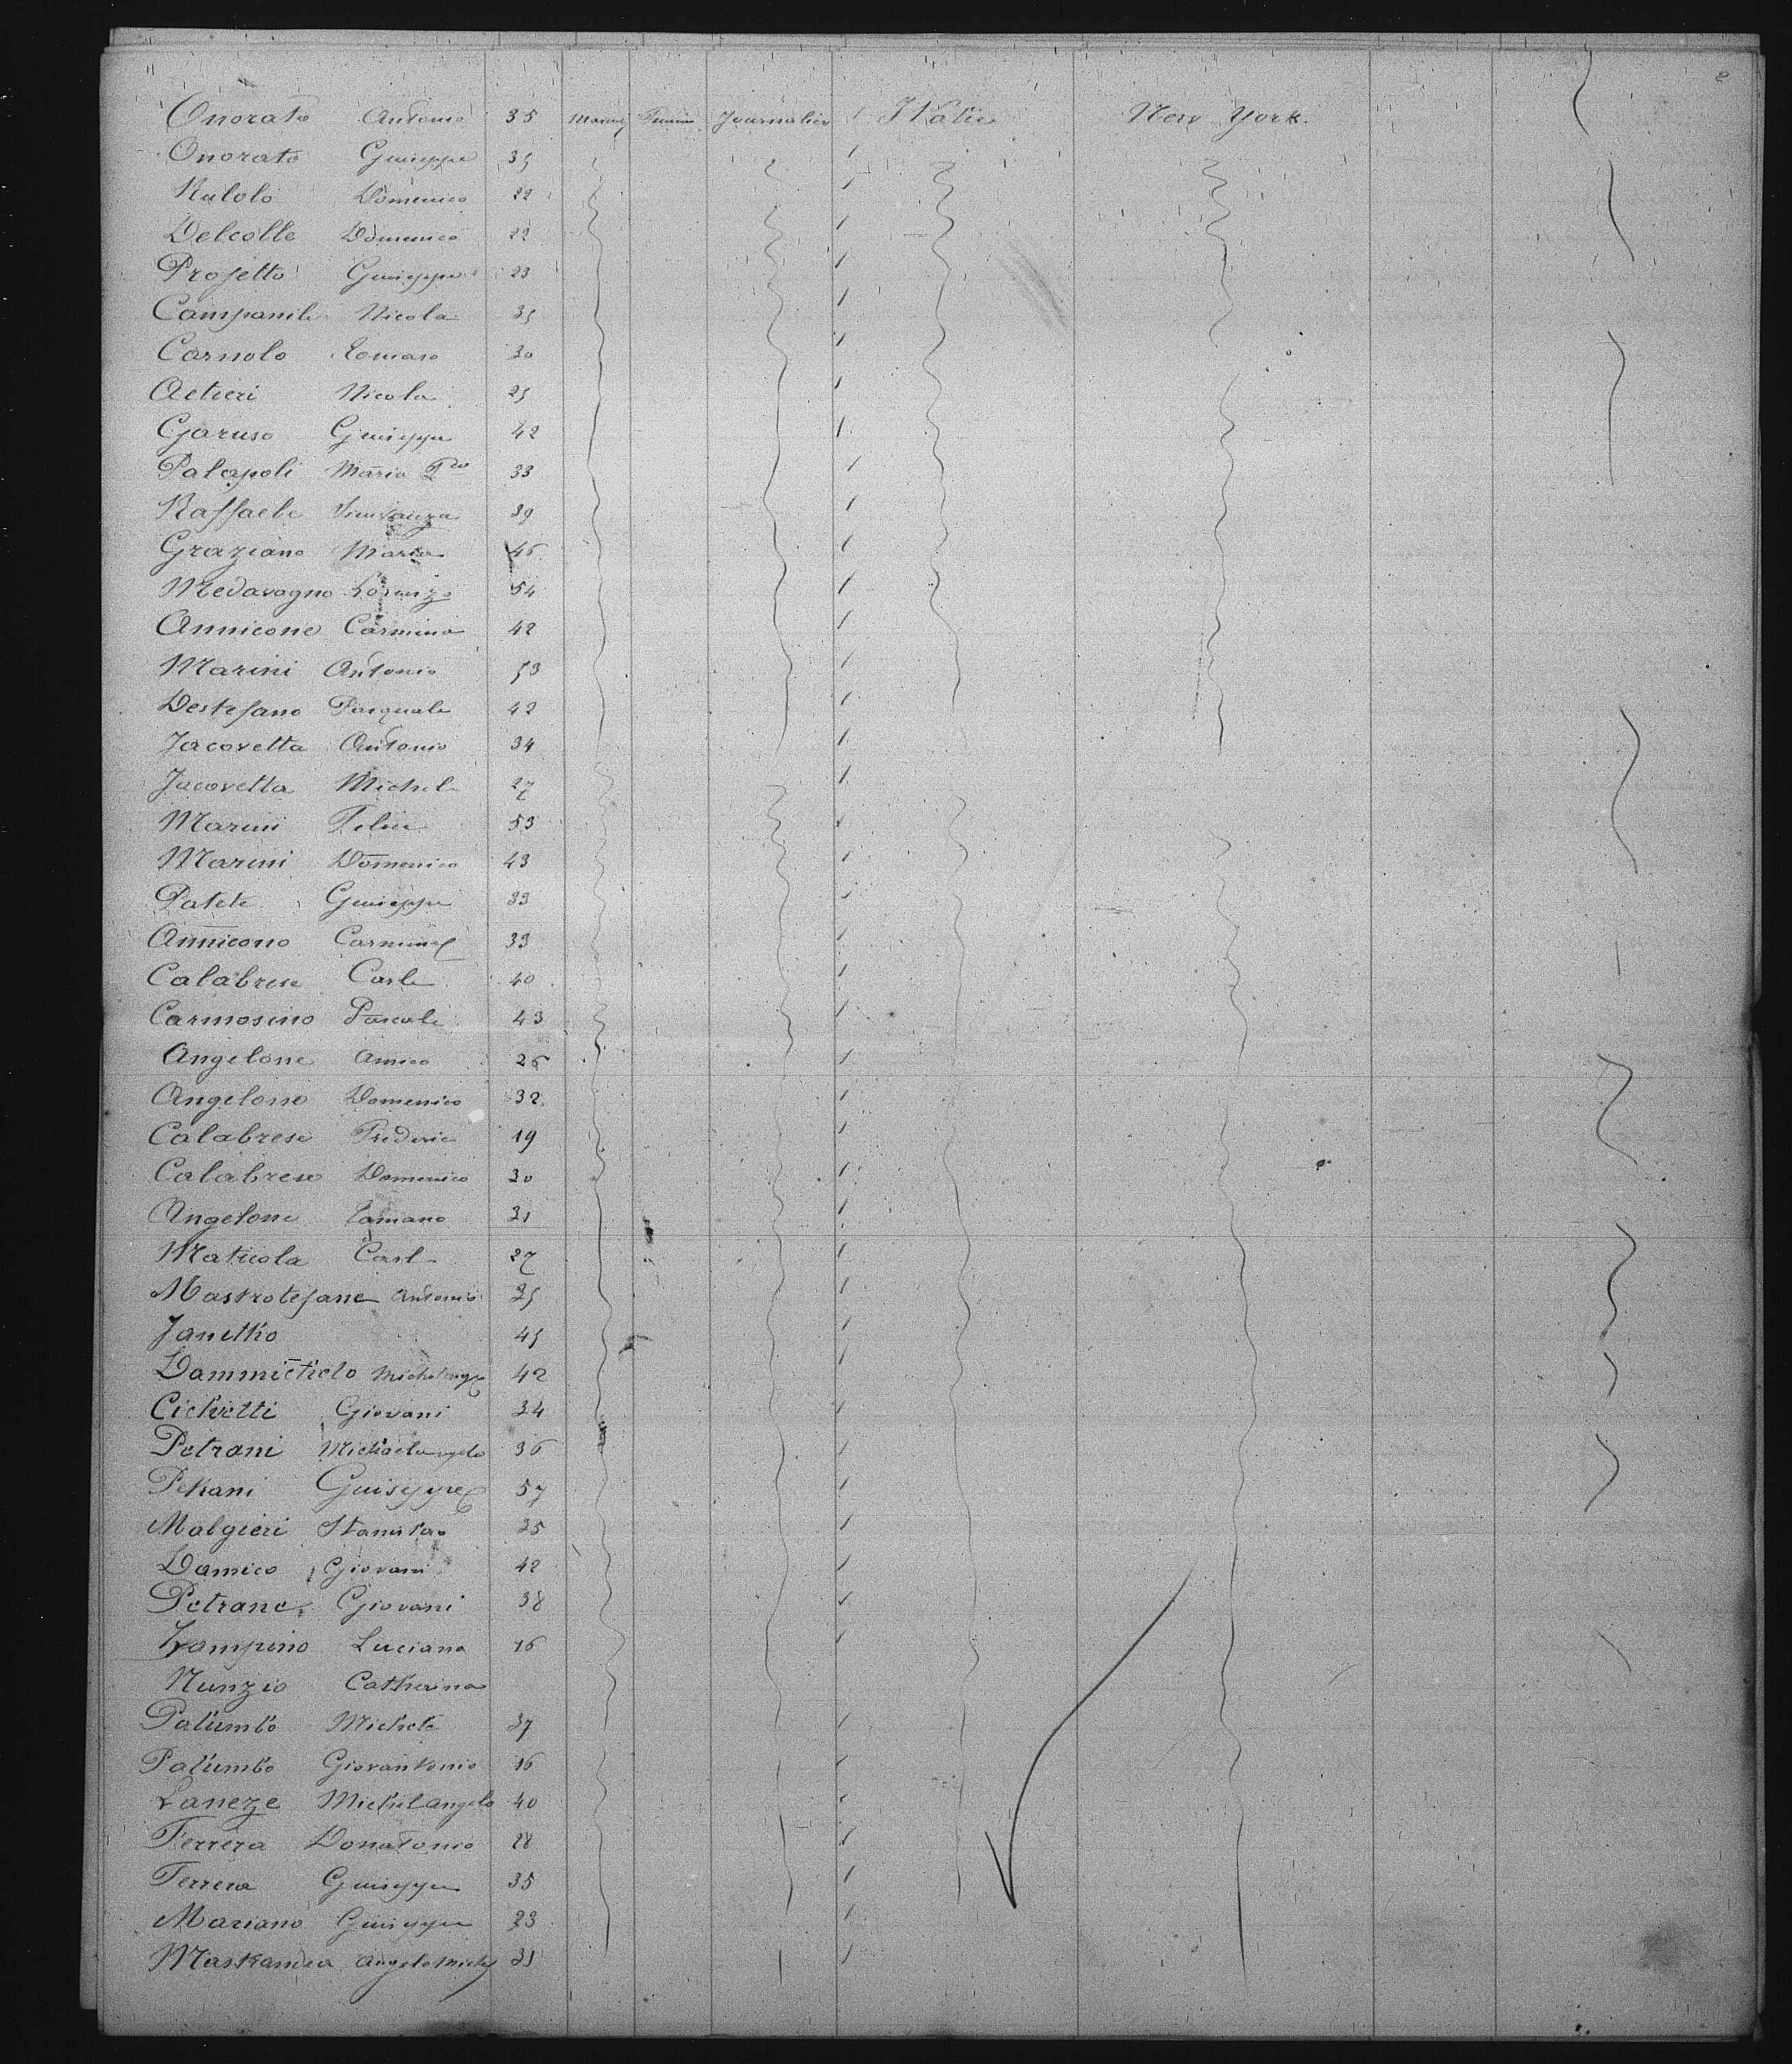 2
Onorato Antonio 35 Mascul Feminin Journalier / Italie New York.
Onorato Guiseppe 35 /
Rulolo Domenico 22 /
Delcolle Domenico 22 /
Projetto Guiseppe 23 /
Campanile Nicola 35 /
Carnolo Tomaso 30 /
Actieri Nicola 25 /
Garuso Guiseppe 42 /
Palapoli Maria 33 /
Raffaele 39 /
Graziano Maria 46 /
Medavagno Lorenzo 54 /
Annicone Carmino 42 /
Marini Antonio 53 /
Destefano Pasquale 42 /
Jacovetta Antonio 34 /
Jacovetta Michele 27 /
Marini Felice 53 /
Marini Domenico 43 /
Patete Guiseppe 33 /
Annicono Carmine 33 /
Calabrese Carle 40 /
Carmosino Pascale 43 /
Angelone Amico 26 /
Angelone Domenico 32 /
Calabrese Frederic 19 /
Calabrese Domenico 30 /
Angelone Tomano 31 /
Maticola Carl 27 /
Mastrotefane Antonio 35 /
Janetko 45 /
Dammicticlo 42 /
Cichetti Giovani 34 /
Petrani Michaelangelo 36 /
Petrani Guiseppe 57 /
Malgieri Stanislao 25 /
Damico Giovani 42 /
Petrane Giovani 38 /
Zampino Luciano 16 /
Nunzio Catherina
Palumbo Michele 37 /
Palumbo Giovantonio 16 /
Laneze Michelangelo 40 /
Ferrera Donatonio 28 /
Ferrera Guiseppe 35 /
Mariano Guiseppe 23 /
Mastrandea 31 /